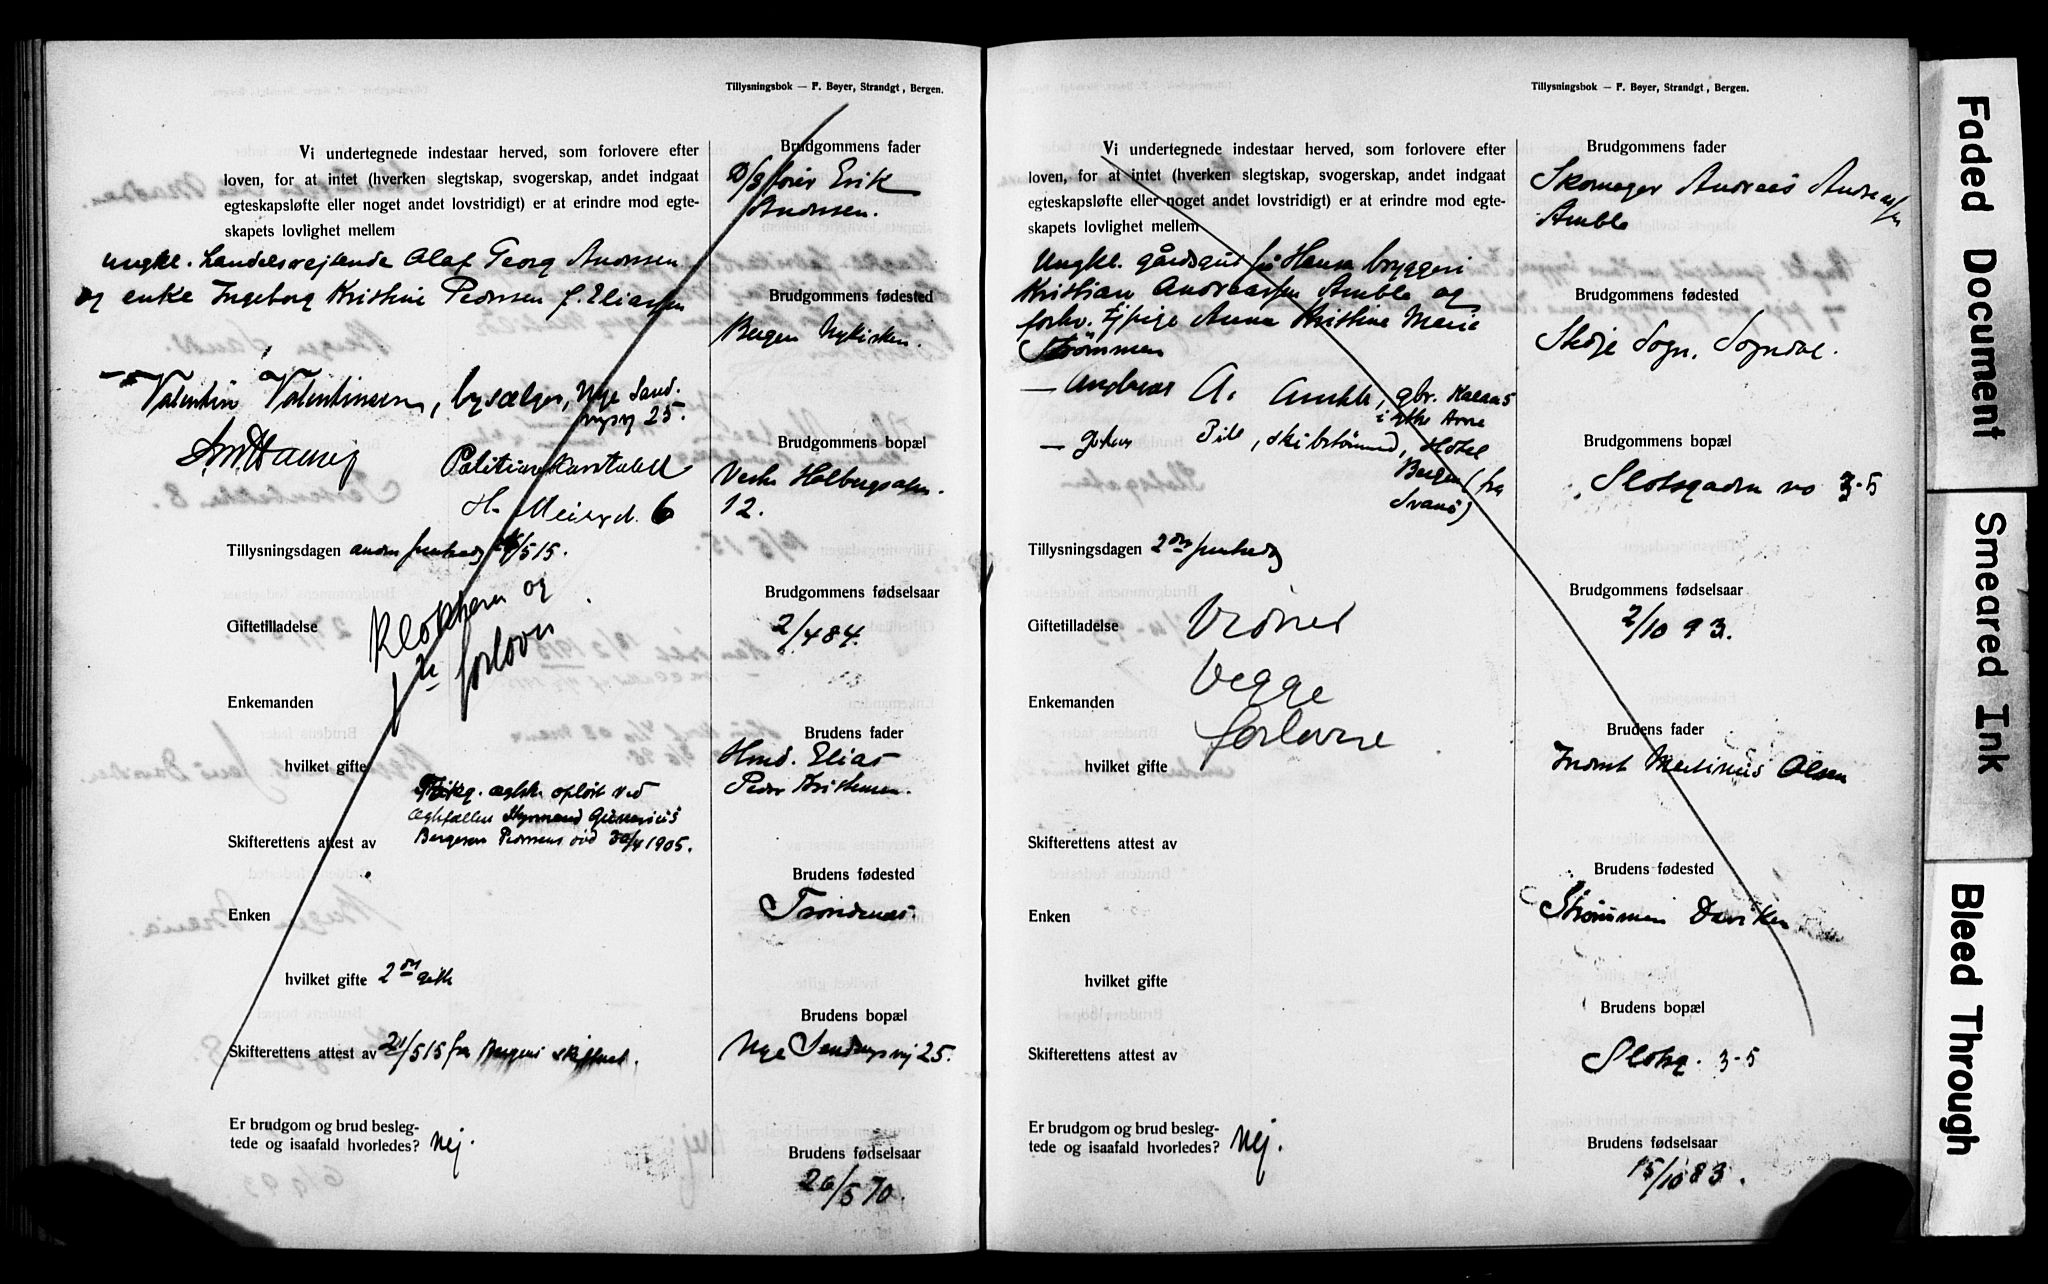 Tillysningsbok — F. Bøyer, Strandgt, Bergen.
Vi undertegnede indestaar herved, som forlovere efter
loven, for at intet (hverken slegtskap, svogerskap, andet indgaat
egteskapsløfte eller noget andet lovstridigt) er at erindre mod egte-
skapets lovlighet mellem
ungkl. Handelsrejsende Olaf Georg Andersen
og enke Ingeborg Kristine Pedersen f. Eliassen
Valentin Valentinsen, bysælger, Nye Sand-
vigsv 25.
Politikonstabel
H. Meiersd. 6
Tillysningsdagen anden pinsedag 24/5 15.
Giftetilladelse
Klokkeren og
forlover
Enkemanden
hvilket gifte
egtsk. opløst ved
egtefællen Styrmand
Bergesen Pedersens død 30/4 1905.
Skifterettens attest av
Enken
hvilket gifte 2det gifte
Skifterettens attest av 21/5 15 fra Bergens skifteret.
Er brudgom og brud besleg-
tede og isaafald hvorledes? Nej.
Brudgommens fader
D/S fører Erik
Andersen.
Brudgommens fødested
Bergen Nykirken.
Brudgommens bopæl
Vestre Holbergsalm.
12.
Brudgommens fødselsaar
2/4 84.
Brudens fader
Hmd. Elias
Peder Kristensen.
Brudens fødested
Trondenes.
Brudens bopæl
Nye Sandvigsvej 25.
Brudens fødselsaar
26/5 70.
Tillysningsbok — F. Bøyer, Strandgt, Bergen.
Vi undertegnede indestaar herved, som forlovere efter
loven, for at intet (hverken slegtskap, svogerskap, andet indgaat
egteskapsløfte eller noget andet lovstridigt) er at erindre mod egte-
skapets lovlighet mellem
Ungkl. gårdsgut på Hansa bryggeri
Kristian Andreassen Amble og
forhv. Tj. pige Anna Kristine Marie
Strømmen
— Andreas A. Amble, gbr. Kalsås
i ytre Arne
— Johan Pile, skibstømmd, Hotel
Bergen (fra
Svanø)
Tillysningsdagen 2den pinsedag
Giftetilladelse
Vegge
forlovere
Enkemanden
hvilket gifte
Skifterettens attest av
Enken
hvilket gifte
Skifterettens attest av
Er brudgom og brud besleg-
tede og isaafald hvorledes? Nej.
Brudgommens fader
Skomager Andreas Andreassen
Amble
Brudgommens fødested
Stedje Sogn, Sogndal.
Brudgommens bopæl
Slotsgaden no 3-5
Brudgommens fødselsaar
2/10 93.
Brudens fader
Inderst Martinus Olsen
Brudens fødested
Strømmen Daviken
Brudens bopæl
Slotsg. 3-5
Brudens fødselsaar
15/10 83.
Faded Document
Smeared Ink
Bleed Through